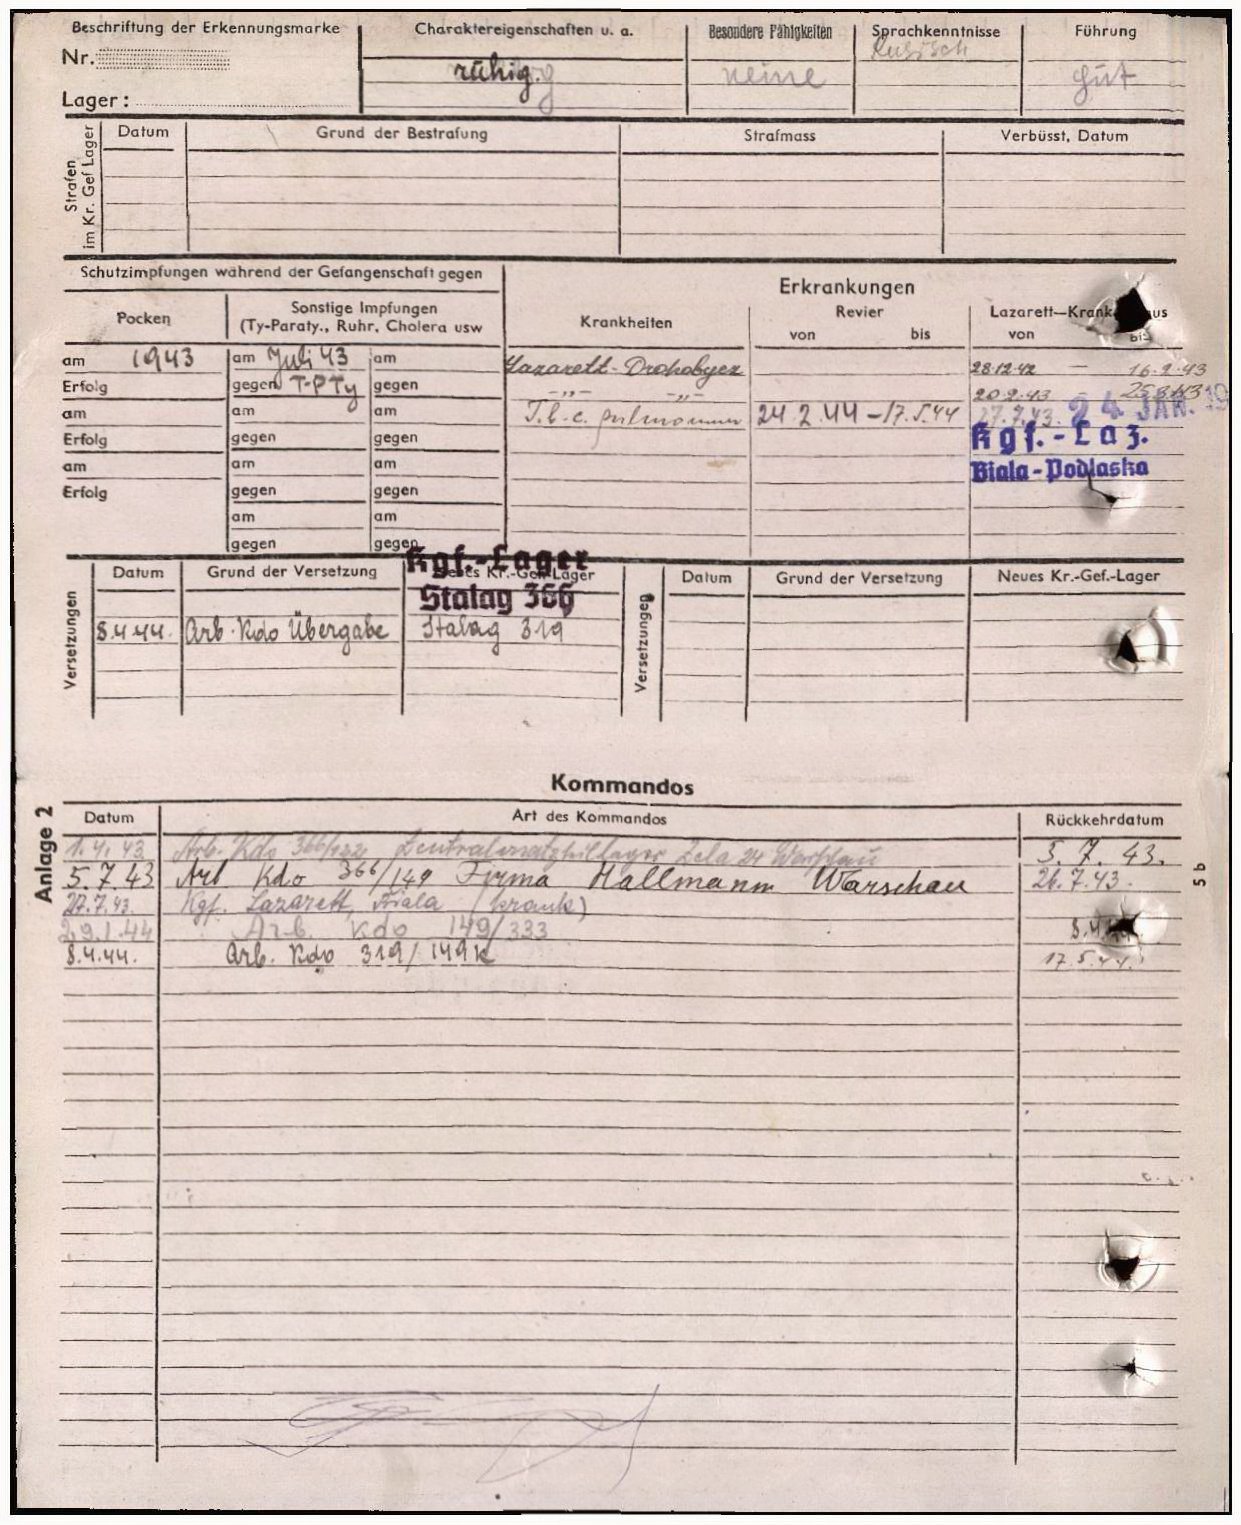 Beschriftung der Erkennungsmarke
Nr.
Lager :
Charaktereigenschaften u. a.
ruhig.
Besondere Fähigkeiten
keine
Sprachkenntnisse
Russisch
Führung
gut
Strafen
im Kr. Gef Lager
Datum Grund der Bestrafung Strafmass Verbüsst, Datum
Schutzimpfungen während der Gefangenschaft gegen
Pocken
Sonstige Impfungen
(Ty-Paraty., Ruhr, Cholera usw
Erkrankungen
Krankheiten
Revier
von bis
Lazarett-Krankenhaus
von bis
am 1943 am Juli 43 am
Erfolg gegen T-PTy gegen
am am am
Erfolg gegen gegen
am am am
Erfolg gegen gegen
am am
gegen gegen
Lazarett-Drohobycz 28.12.42 — 16.2.43
-„- -„- 20.2.43 25.3.43
T.b.c. pulmonum 24.2.44 - 17.5.44 27.7.43. 24. JAN. 19
Kgf.-Laz.
Biala-Podlaska
Versetzungen
Datum Grund der Versetzung Neues Kr.-Gef.-Lager
Kgf.-Lager
Stalag 366
8.4.44. Arb. Kdo Übergabe Stalag 319
Versetzungen
Datum Grund der Versetzung Neues Kr.-Gef.-Lager
Kommandos
Anlage 2
Datum Art des Kommandos Rückkehrdatum
1.4.43 Arb. Kdo 366/122 Warschau 5.7.43.
5.7.43 Arb Kdo 366/149 Firma Hallmann Warschau 26.7.43.
27.7.43. Kgf. Lazarett, Biala (krank)
29.1.44 Arb. Kdo 149/333 8.4.44.
8.4.44. Arb. Kdo 319/149k 17.5.44.
5 b